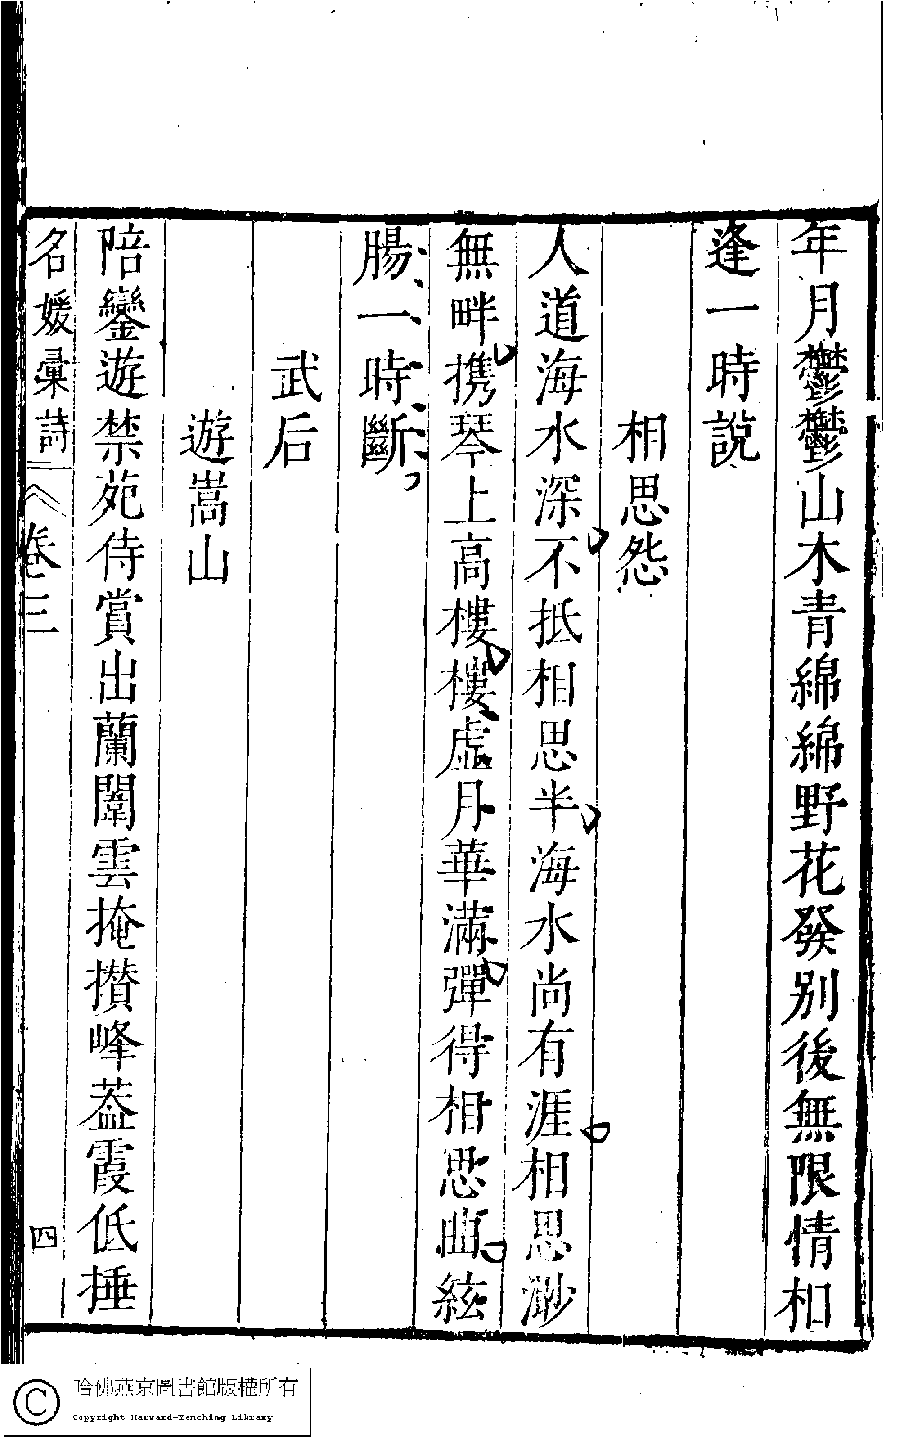 年月鬱鬱山木青綿綿野花發別後無限情相
逢一時說
相思怨
人道海水深不抵相思半海水尚有涯相思渺
無畔携琴上高樓樓虛月華滿彈得相思曲絃
腸一時斷
武后
遊嵩山
陪鑾遊禁苑侍賞出蘭闈雲掩攅峰葢霞低捶
名媛彙詩
卷三
四
哈佛燕京圖書館版權所有
Copyright Harvard-Yenching Library